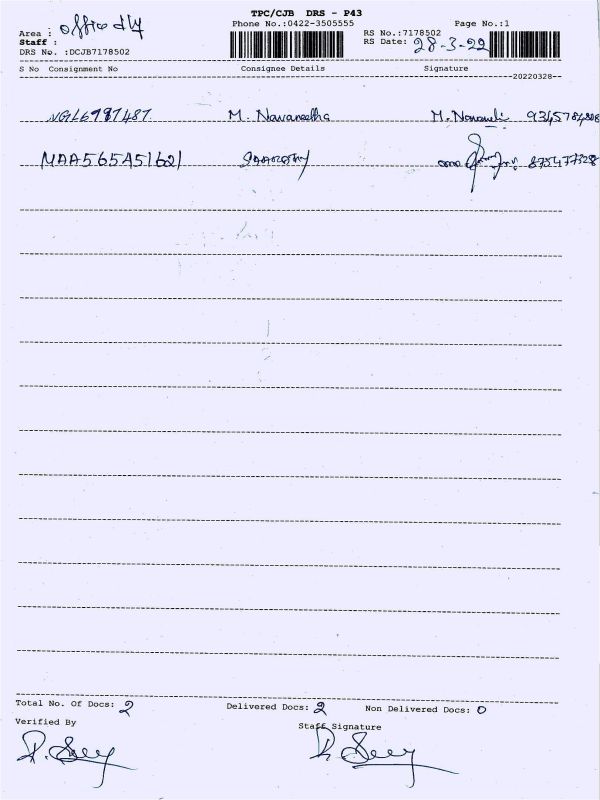 TPC/CJB DRS - P43
Area : office dly
Phone No.:0422-3505555
Page No.:1
Staff :
RS No.:7178502
DRS No. :DCJB7178502
RS Date: 28-3-22
S No Consignment No Consignee Details Signature
--20220328--
M. Navaneetha
MAA565A51621
Total No. Of Docs: 2 Delivered Docs: 2 Non Delivered Docs: 0
Verified By Staff Signature